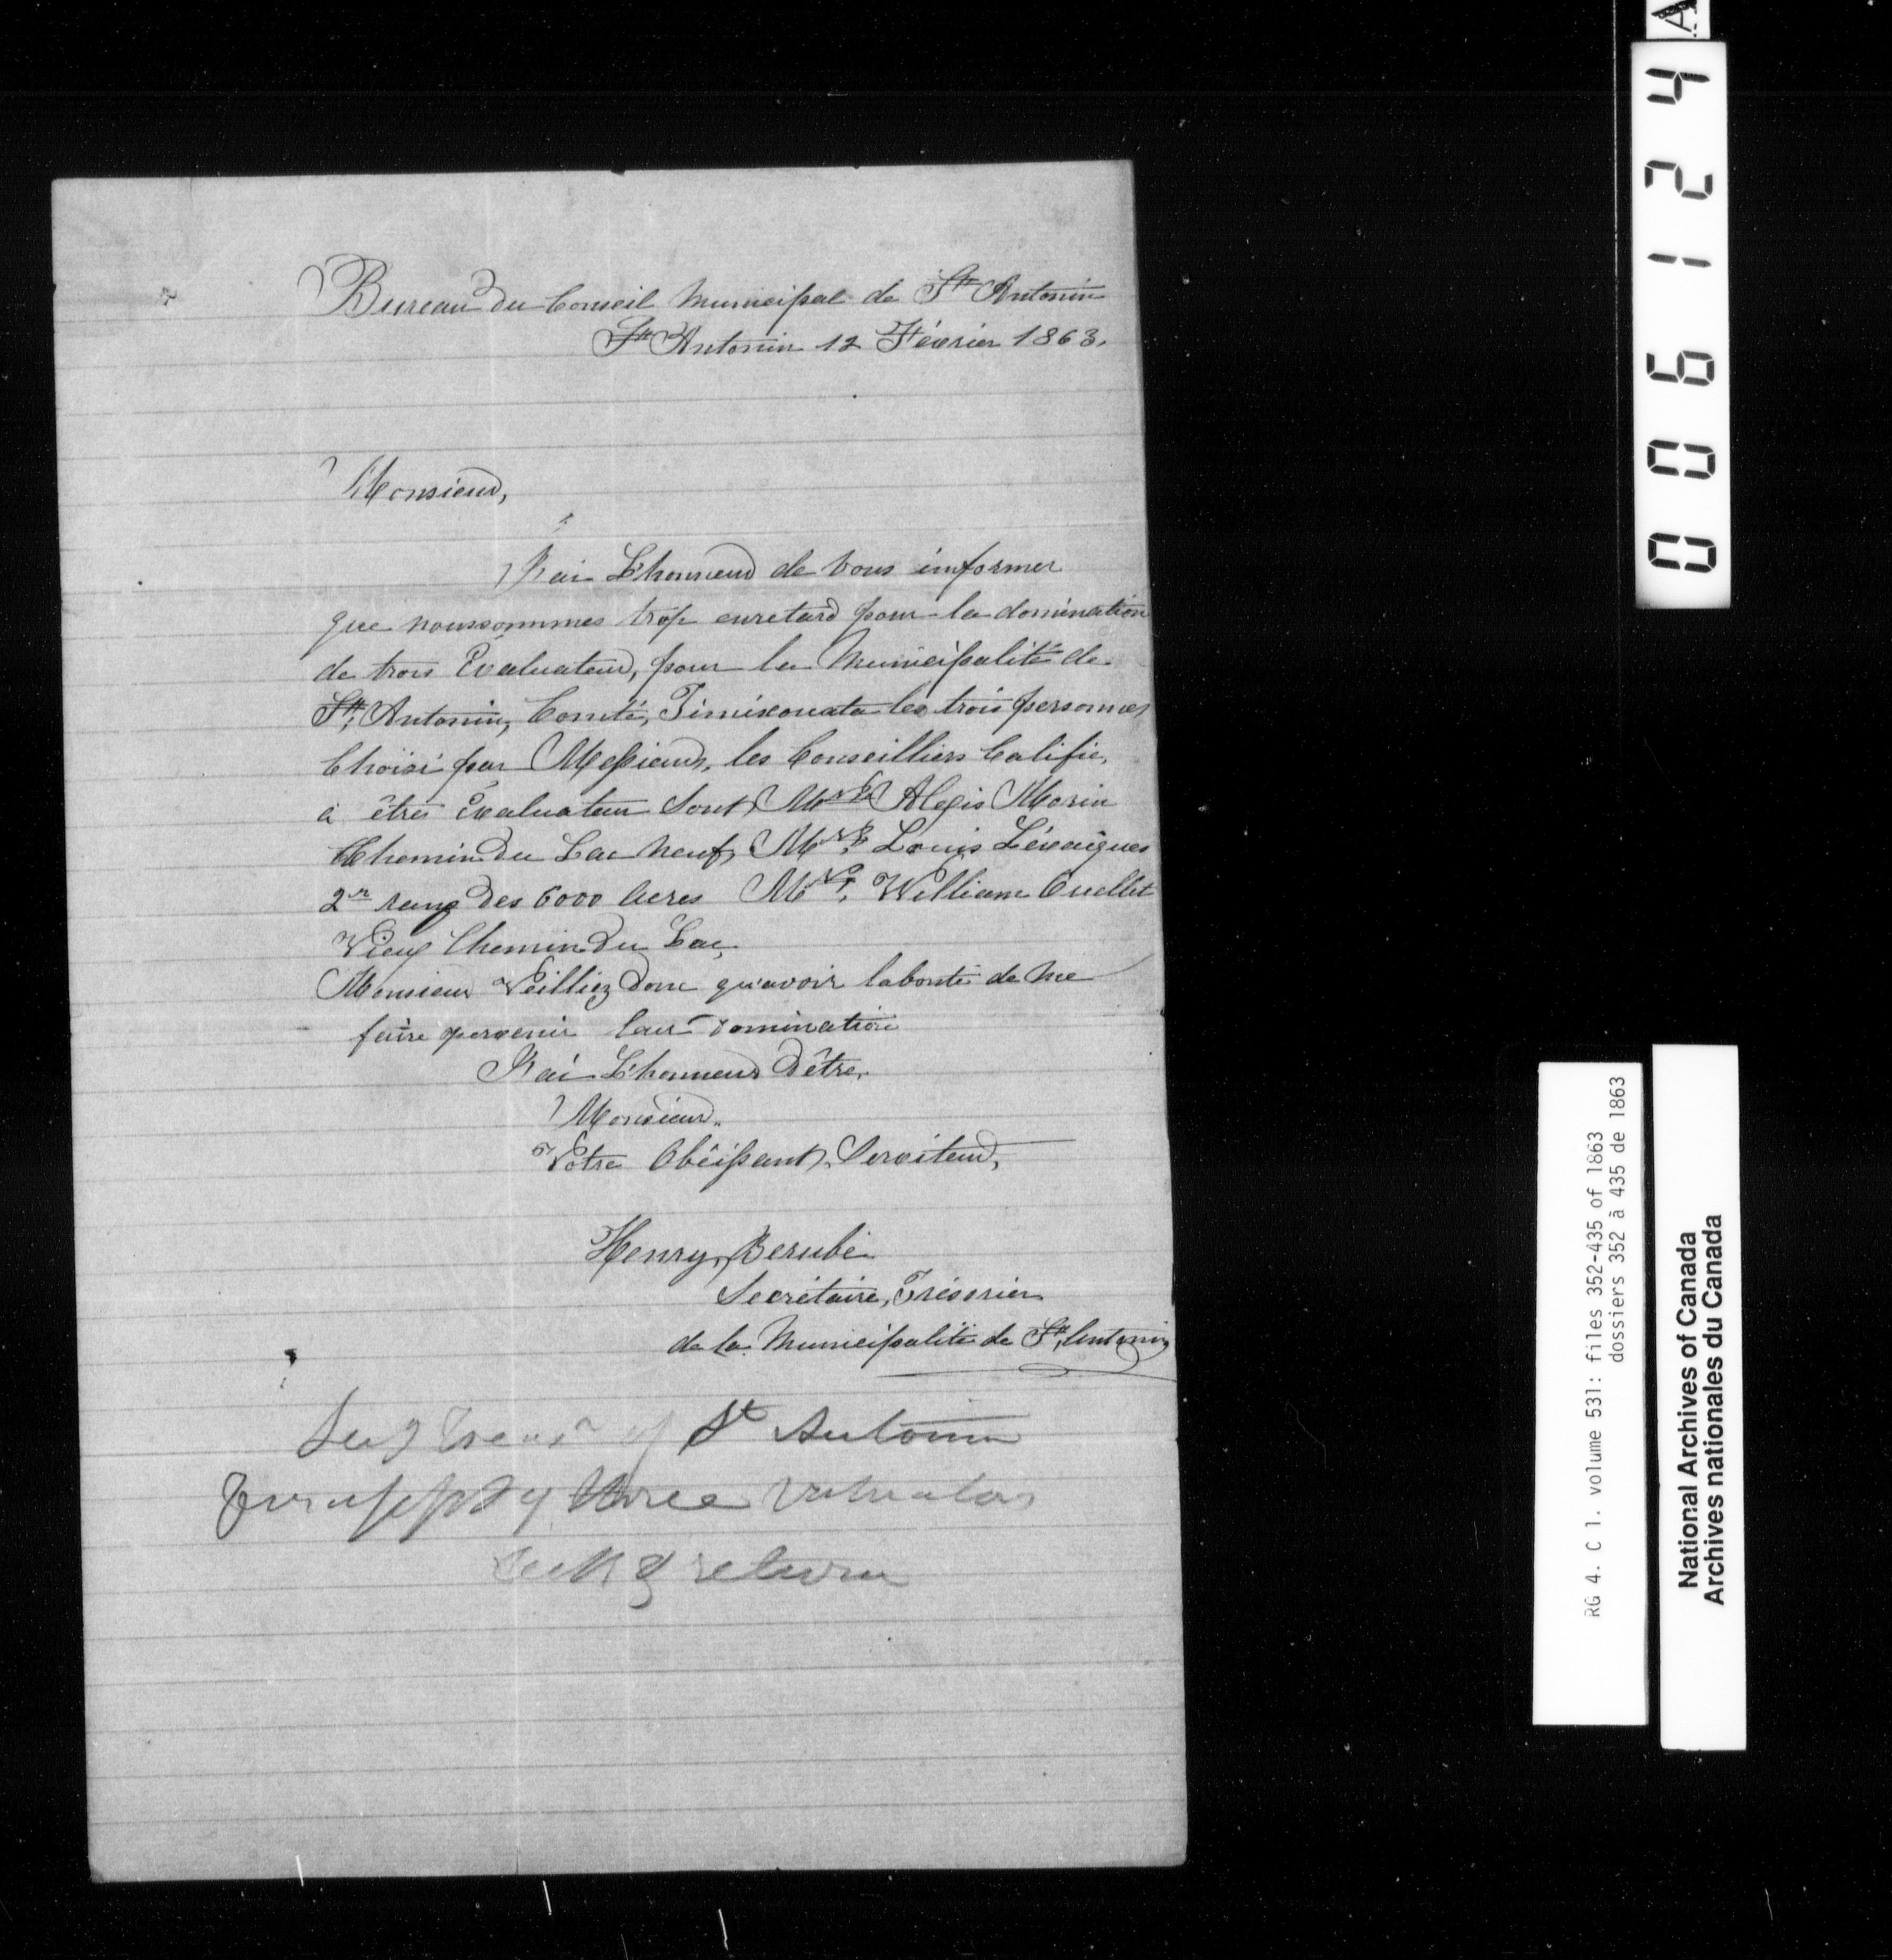 Bureau du Conseil Municipal de St Antonin
St Antonin 12 Février 1863.
Monsieur,
J'ai L'honneur de vous informer
que noussommes trop enretard pour la domination
de trois Évaluateur, pour la Municipalité de
St, Antonin, Comté, Timixouata les trois personnes
Choisi par Messieurs, les Conseilliers Califié,
à êtres Évaluateur Sont, Mr Alexis Morin
Chemin du Lac Neuf, Mr Louis Lévaiques
2n rang des 6000 Acres Mr, William Ouellet
Vieux Chemin du Lac,
Monsieur Veilliez donc qu'avoir labonté de me
faire parvenir leur domination
J'ai L'honneur D'être,
Monsieur,
Votre Obéissant, Serviteur,
Henry, Berubé
Secrétaire, Trésorier
de la Municipalité de St, Antonin
of St Antonin
for appt of three valuators
return
006124
A
RG 4. C 1. volume 531: files 352-435 of 1863
dossiers 352 à 435 de 1863
National Archives of Canada
Archives nationales du Canada